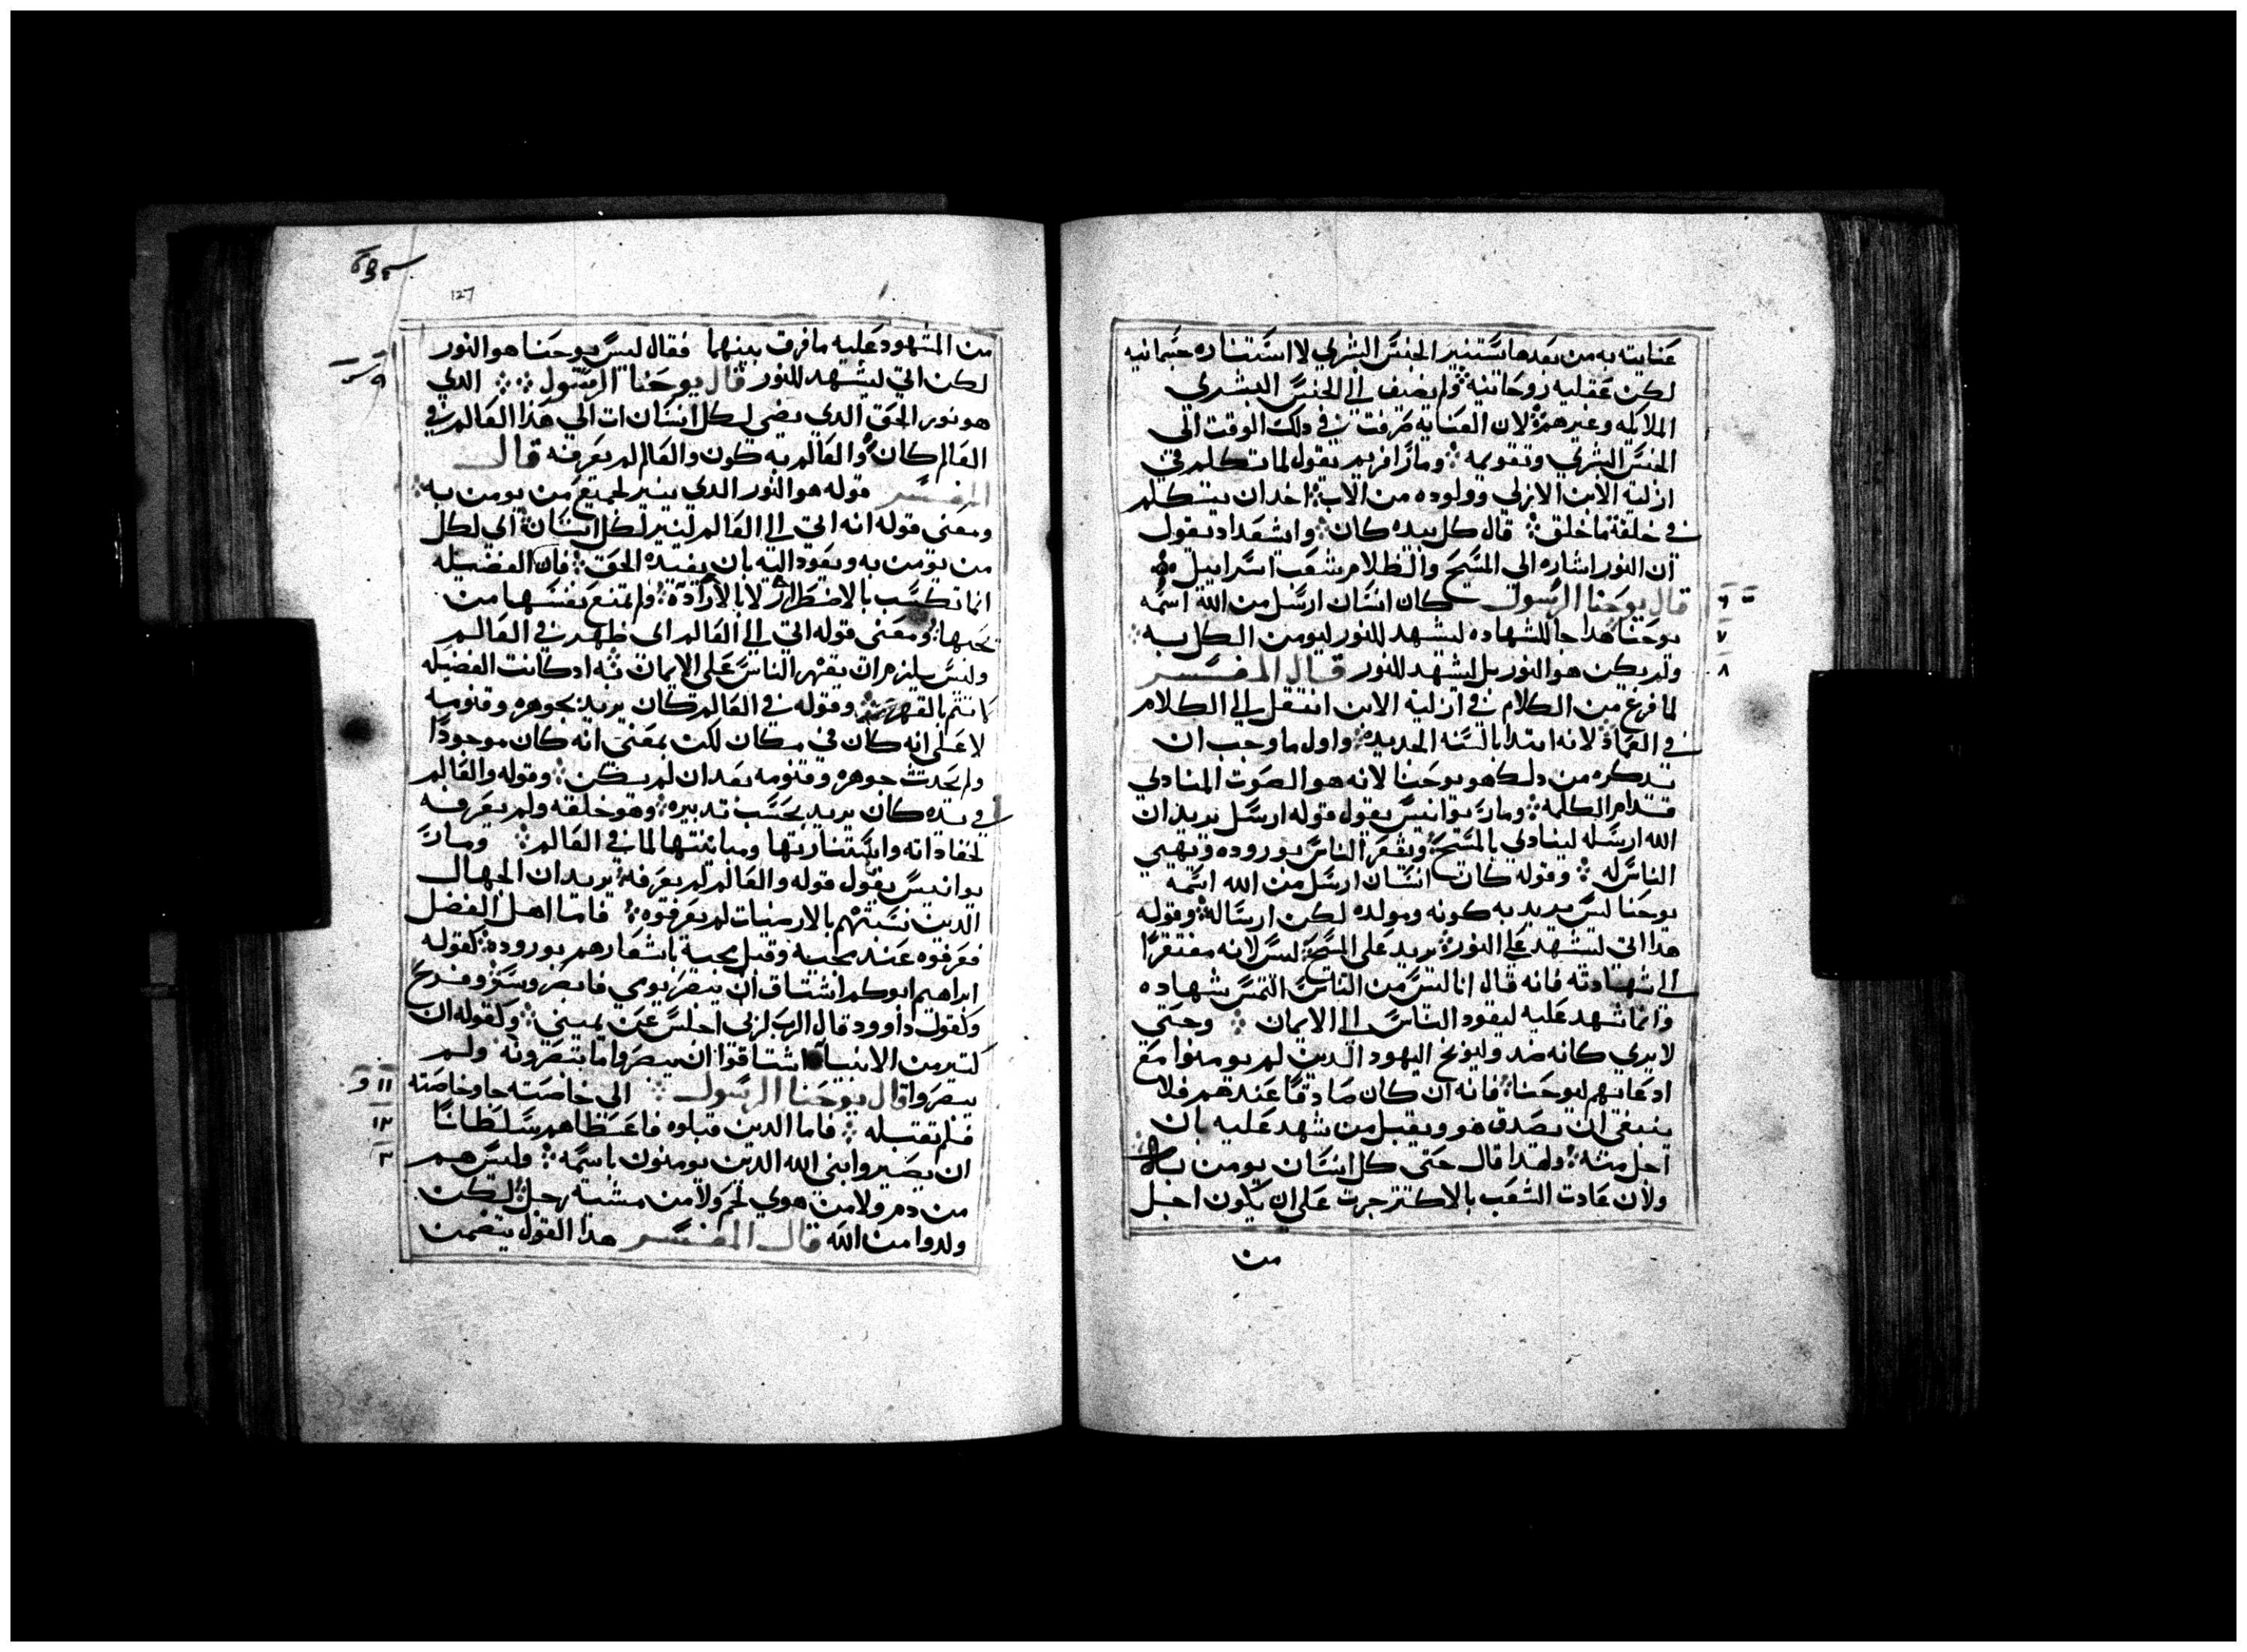 عنايته به من بعدها يستنير الجنس البشري لا استناره جسمانيه
لكن عقليه روحانيه ولم يضيف الي الجنس البشري
الملايكه وغيرهم لان العنايه صرفت في دلك الوقت الي
الجنس البشري وتقويمه ومار افريم يقول لما تكلم في
ازلية الابن الازلي وولوده من الاب اخد ان يتكلم
في خلقة ما خلق قال كل بيده كان وايشعداد يقول
ان النور اشاره الي المسيح والظلام شعب اسراييل
قال يوحنا الرسول كان انسان ارسل من الله اسمه
٦
يوحنا هدا جا للشهاده ليشهد للنور ليومن الكل به
٧
ولم يكن هو النور بل ليشهد للنور قال المفسر
٨
لما فرغ من الكلام في ازلية الابن انتقل الي الكلام
في العماد لانه ابتدا بالسنه الجديده واول ما وجب ان
تدكره من دلك هو يوحنا لانه هو الصوت المنادي
قدام الكلمه ومار يوانيس يقول قوله ارسل يريد ان
الله ارسله لينادي بالمسيح ويشعر الناس بوروده ويهيي
الناس له وقوله كان انسان ارسل من الله اسمه
يوحنا ليس يريد به كونه ومولده لكن ارساله وقوله
هدا اتي ليشهد علي النور يريد علي المسيح ليس لانه مفتقرا
الي شهادته فانه قال انا ليس من الناس التمس شهاده
وانما شهد عليه ليقود الناس الي الايمان وحتي
لا يري كانه ضد وليوبخ اليهود الدين لم يومنوا مع
ادعايهم ليوحنا فانه ان كان صادقا عندهم فلا
ينبغي ان يصدق هو ويقبل من شهد عليه بان
اجل منه ولهدا قال حتي كل انسان يومن به
ولان عادت الشعب بالاكتر جرت علي ان يكون اجل
من
127
من المشهود عليه ما فرق بينهما فقال ليس يوحنا هو النور
لكن اتي ليشهد للنور قال يوحنا الرسول الدي
٩
هو نور الحق الدي يضي لكل انسان ات الي هدا العالم في
العالم كان والعالم به كون والعالم لم يعرفه قال
المفسر قوله هو النور الدي ينير لجميع من يومن به
ومعني قوله انه اتي الي العالم لينير لكل انسان اي لكل
من يومن به ويقود اليه بان يفيده الحق فان الفضيله
انما تكسب بالاضطرار لا بالاراده ولم تمنع نفسها من
يحبها ومعني قوله اتي الي العالم اي ظهر في العالم
وليس يلزم ان يقهر الناس علي الايمان به اد كانت الفضيله
لا تتم بالقهر وقوله في العالم كان يريد بجوهره وقنومه
لا علي انه كان في مكان لكن بمعني انه كان موجودا
ولم يحدث جوهره وقنومه بعد ان لم يكن وقوله والعالم
في يده كان يريد بحسب تدبيره وهو خلقه ولم يعرفه
لخفا داته واستنارتها ومباينتها لما في العالم ومار
يوانيس يقول قوله والعالم لم يعرفه يريد ان الجهال
الدين نسبتهم بالارضيات لم يعرفوه فاما اهل الفضل
فعرفوه عند مجيه وقبل مجيه باشعارهم بوروده كقوله
ابراهيم ابوكم اشتاق ان ينصر يومي فابصر وسر وفرح
وكقول داوود قال الرب لربي اجلس عن يميني وكقوله ان
كتير من الانبيا اشتاقوا ان يبصروا ما تبصرونه ولم
يبصروا قال يوحنا الرسول الي خاصته جا وخاصته
١١
فلم تقبله فاما الدين قبلوه فاعطاهم سلطانا
١٢
ان يصيروا بني الله الدين يومنون باسمه وليس هم
من دم ولا من هوي لحم ولا من مشية رجل لكن
ولدوا من الله قال المفسر هدا القول يتضمن